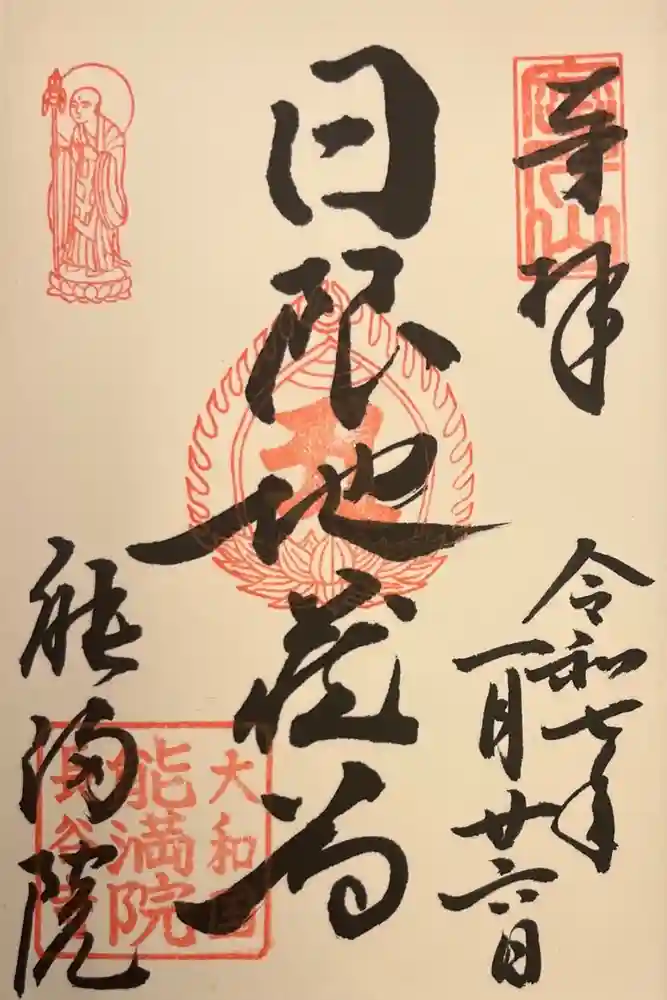 奉拝
令和七年
一月廿六日
日限地蔵尊
能満院
大和国
能満院
長谷寺